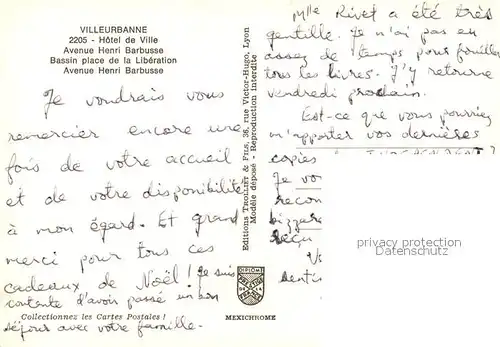 VILLEURBANNE
2205 - Hôtel de Ville
Avenue Henri Barbusse
Bassin place de la Libération
Avenue Henri Barbusse
Je voudrais vous
remercier encore une
fois de votre accueil
et de votre disponibilité
à mon égard. Et grand
merci pour tous ces
cadeaux de Noël ! Je suis
contente d'avoir passé un bon
séjour avec votre famille.
Collectionnez les Cartes Postales !
Editions TROLLIET & FILS, 36, rue Victor-Hugo, Lyon
Modèle déposé - Reproduction interdite
DIPLOME
MEXICHROME
Mlle Rivet a été très
gentille. Je n'ai pas eu
assez de temps pour fouiller
tous les livres. J'y retourne
vendredi prochain.
Est-ce que vous pourriez
m'apporter vos dernières
copies
Je vo
recon
bizzare
reçu
privacy protection
Datenschutz